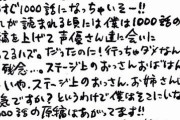 すぐ1000話になっちゃいそー!!
しが読まれる頃には僕は1000話の
稿を上げて声優さんに会いに
ってるハズ。だったのに!行っちゃダメなん
残念…。ステージ上のおっさんおばさん
いや、ステージ上のおっさん、お姉さん
意ですか?というわけで僕はそこにいな
00話の原稿はあがってます!!